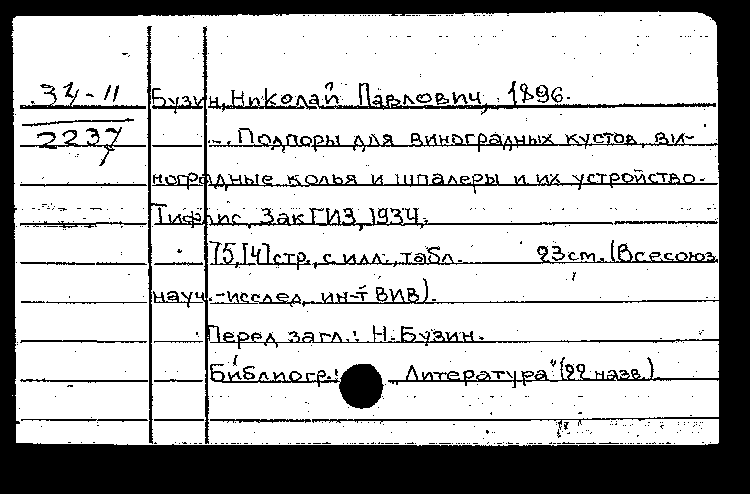 34-11 Бузин, Николай Павлович, 1896-
2237 ... Подпоры для виноградных кустов, ви-
ноградные колья и шпалеры и их устройство.
Тифлис, ЗакГИЗ, 1934.
75,[4]стр., с илл., табл. 23см. (Всесоюз.
науч.-исслед. ин-т ВИВ).
Перед загл.: Н. Бузин.
Библиогр.: „Литература" (22 назв.)